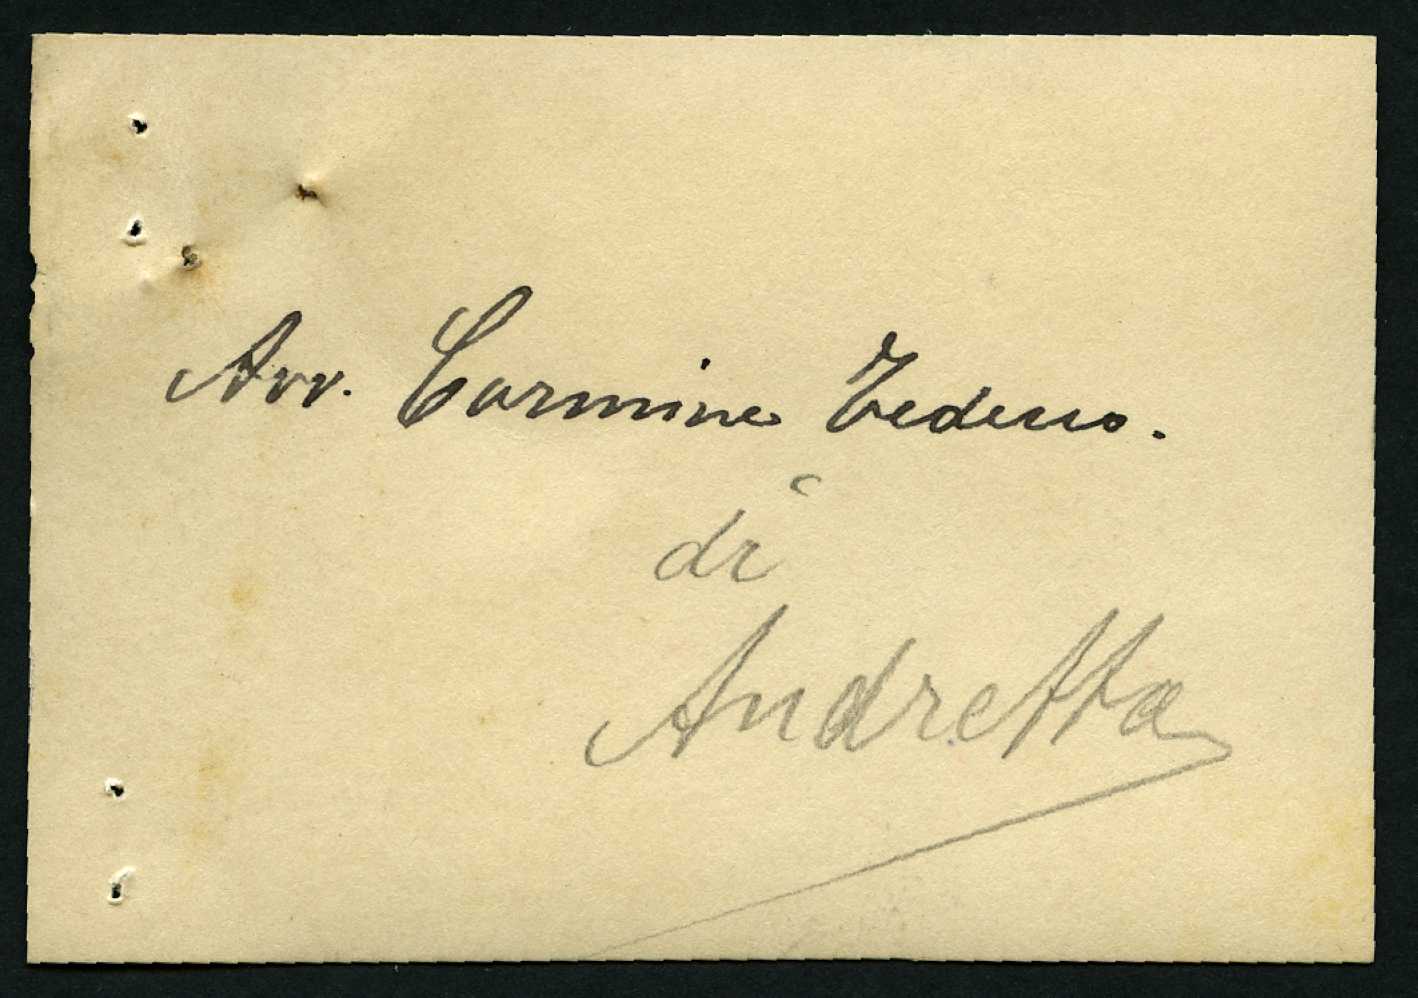 Avv. Carmine Tedesco.
di
Andretta